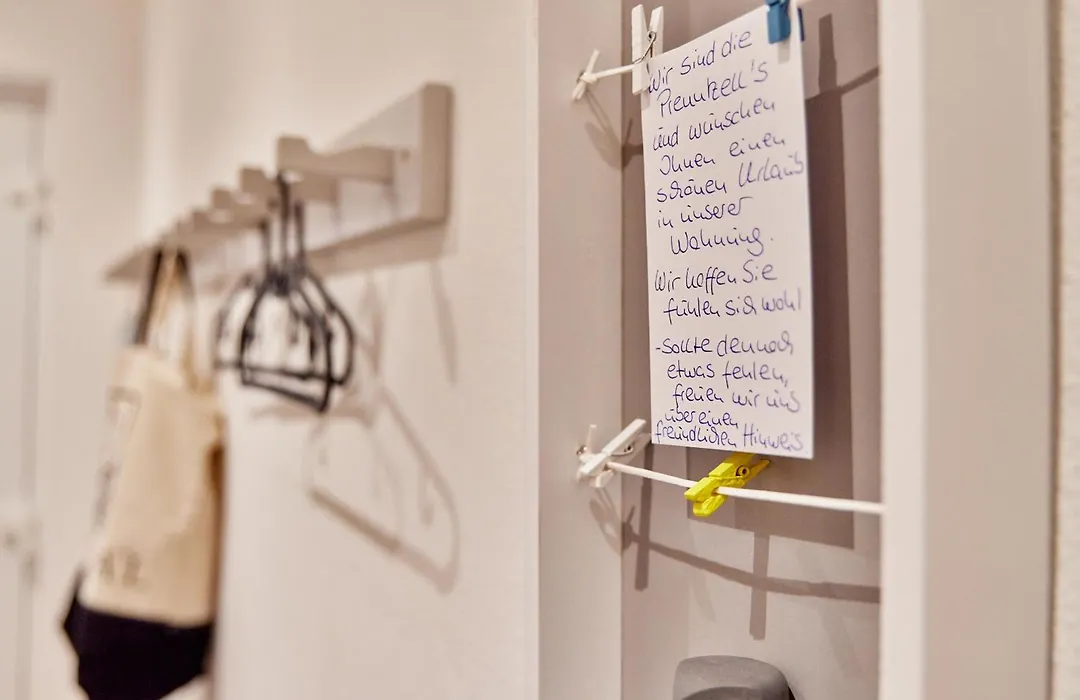 Wir sind die
Pienntzell's
und wünschen
Ihnen einen
schönen Urlaub
in unserer
Wohnung.
Wir hoffen Sie
fühlen sich wohl
-sollte dennoch
etwas fehlen,
freuen wir uns
über einen
freundlichen Hinweis